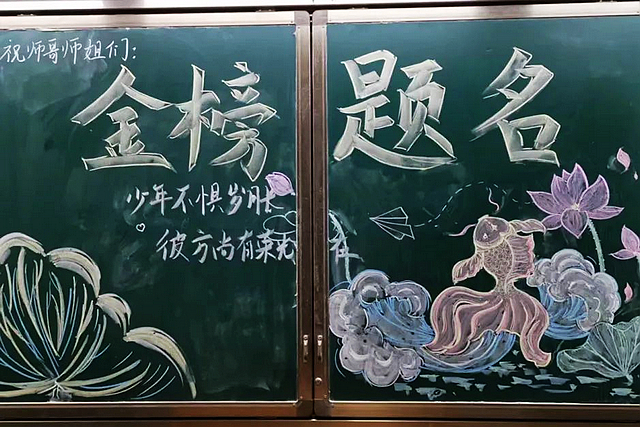 祝师哥师姐们:
金榜题名
少年不惧岁月长
彼方尚有荣光在